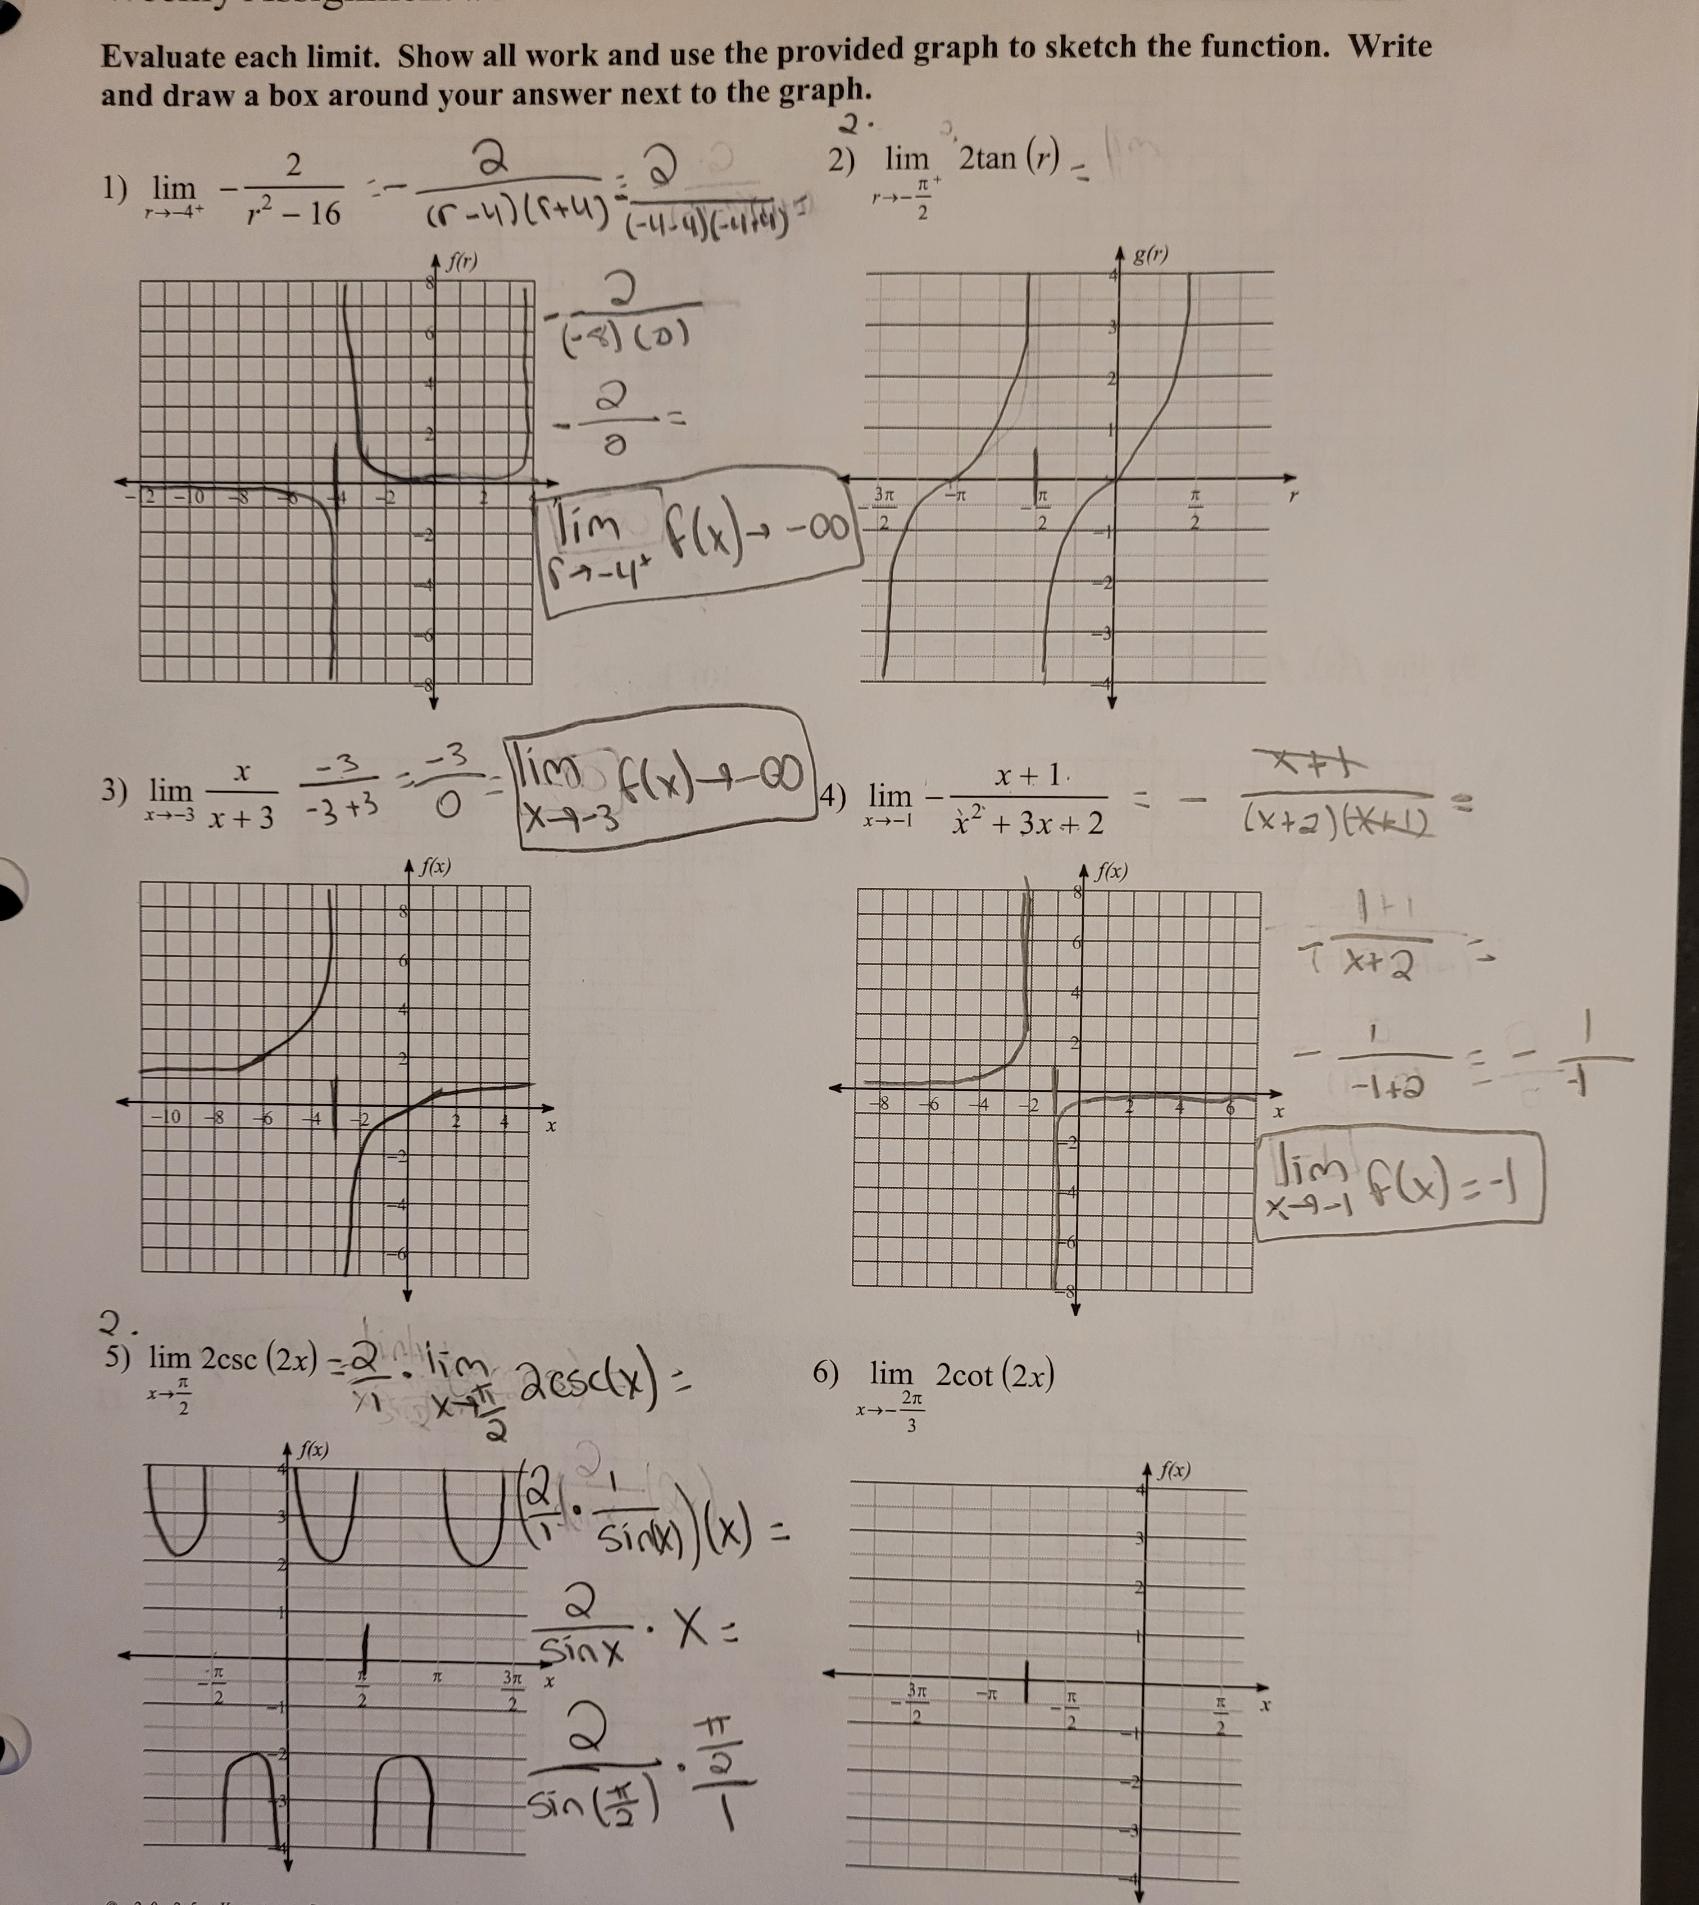 Evaluate each limit. Show all work and use the provided graph to sketch the function. Write
and draw a box around your answer next to the graph.
1) lim r→-4⁺ - 2/(r² - 16) = - 2/((r-4)(r+4)) = 2/((-4-4)(-4+4)) =
- 2/((-8)(0))
- 2/0 =
lim r→-4⁺ f(x) → -∞
f(r)
8
6
4
2
-12 -10 -8 -6 -4 -2 2
-2
-4
-6
-8
2.
2) lim r→-π/2⁺ 2tan (r) =
g(r)
4
3
2
1
-3π/2 -π -π/2 π/2 r
-1
-2
-3
-4
3) lim x→-3 x/(x + 3) -3/(-3+3) = -3/0 = lim x→-3 f(x) → -∞
f(x)
8
6
4
2
-10 -8 -6 -4 -2 2 4 x
-2
-4
-6
4) lim x→-1 - (x + 1)/(x² + 3x + 2) = - (x+1)/((x+2)(x+1)) =
- 1+1/(x+2) =
- 1/(-1+2) = - 1/-1
lim x→-1 f(x) = -1
f(x)
8
6
4
2
-8 -6 -4 -2 2 4 6 x
-2
-4
-6
-8
2.
5) lim x→π/2 2csc (2x) = 2/1 · lim x→π/2 2csc(x) =
(2/1 · 1/sin(x))(x) =
2/sinx · x =
2/sin(π/2) · π/2/1
f(x)
4
3
2
1
-π/2 π/2 π 3π/2 x
-1
-2
-3
-4
6) lim x→-2π/3 2cot (2x)
f(x)
4
3
2
1
-3π/2 -π -π/2 π/2 x
-1
-2
-3
-4